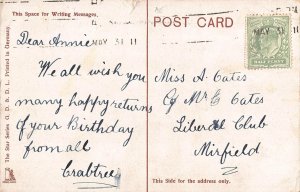 This Space for Writing Messages.
POST CARD
MAY 31 11
MAY 31
HALF PENNY
Dear Annie
We all wish you
many happy returns
of your Birthday
from all
Crabtree
Miss A. Oates
C/o Mr C Oates
Liberal Club
Mirfield
The Star Series G. D. & D. L. Printed in Germany.
This Side for the address only.